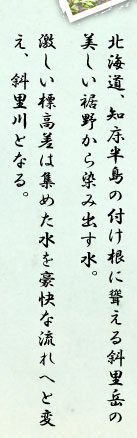 北海道、知床半島の付け根に聳える斜里岳の
美しい裾野から染み出す水。
激しい標高差は集めた水を豪快な流れへと変
え、斜里川となる。